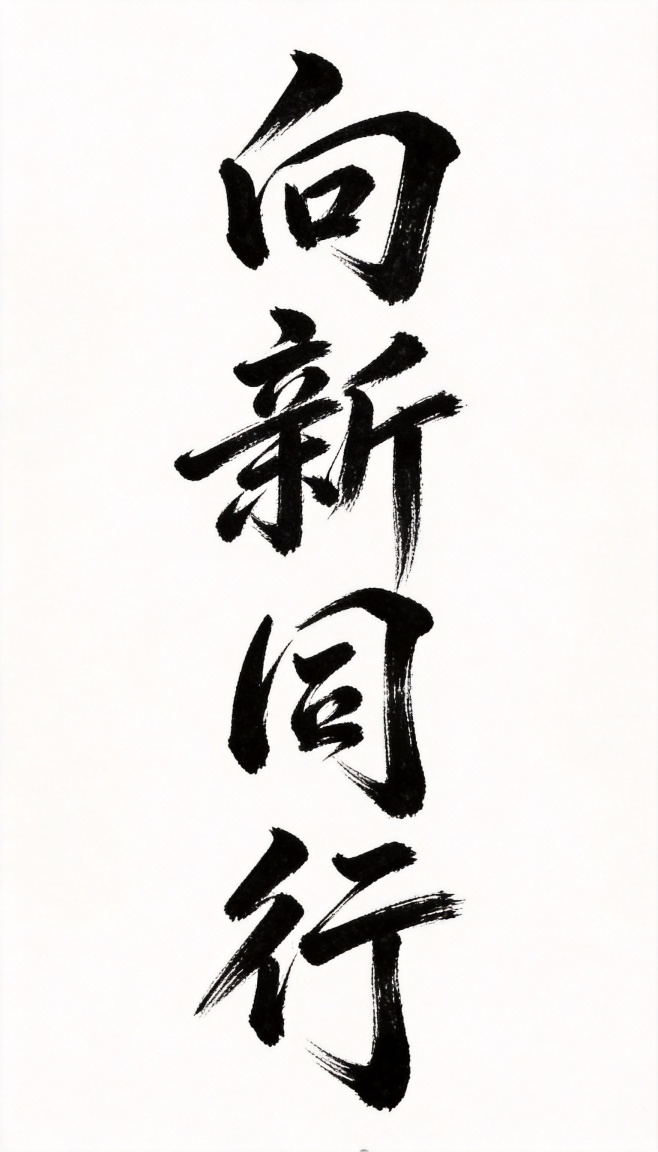 向新同行